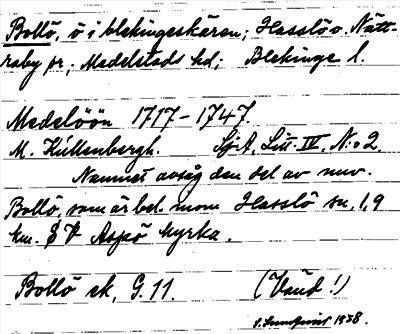 Bollö, ö i blekingeskären; Hasslö o. Nätt-
raby sr; Medelstads hd; Blekinge l.
Medelöön 1717-1747.
M. Kiellenbergh. Sj.A. Litt. IV, N:o 2.
Namnet avsåg den del av nuv.
Bollö, som är bel. inom Hasslö sn. 1,9
km. S V Aspö kyrka.
Bollö ek, G. 11. (Vaud!)
S. Sundquist 1938.